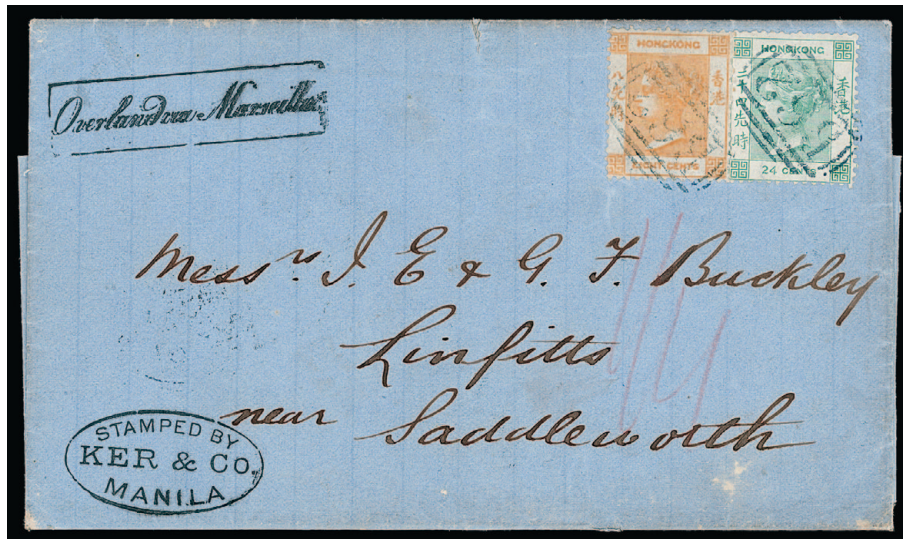 Overland via Marseilles
HONGKONG
香港
EIGHT CENTS
HONGKONG
二十四先時
香港
24 CENTS
Messrs J. E & G. F. Buckley
Linfitts
near Saddleworth
STAMPED BY
KER & CO.
MANILA